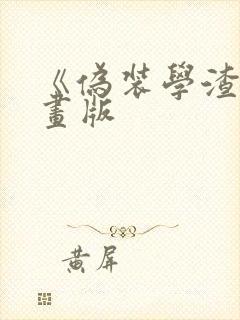 《偽裝學渣
畫版
黃屏